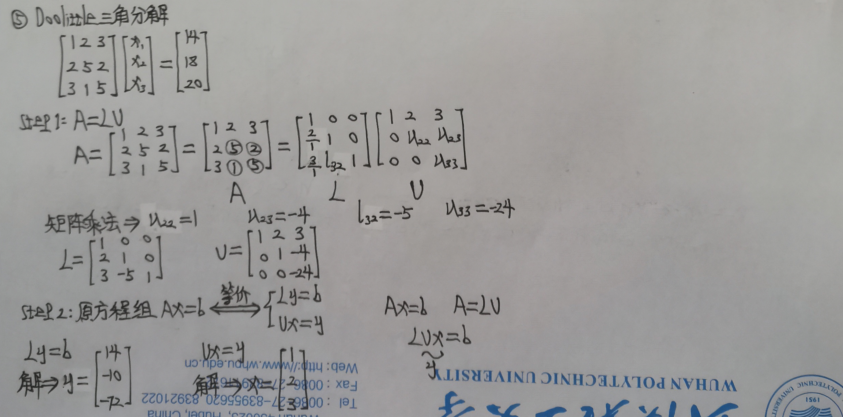 ⑤ Doolittle三角分解
[1 2 3; 2 5 2; 3 1 5] [x₁; x₂; x₃] = [14; 18; 20]
Step1: A=LU
A= [1 2 3; 2 5 2; 3 1 5] = [1 2 3; 2 ⑤ ②; 3 ① ⑤] = [1 0 0; 2/1 1 0; 3/1 l₃₂ 1] [1 2 3; 0 u₂₂ u₂₃; 0 0 u₃₃]
A L U
矩阵乘法⇒ u₂₂=1 u₂₃=-4 l₃₂=-5 u₃₃=-24
L= [1 0 0; 2 1 0; 3 -5 1] U= [1 2 3; 0 1 -4; 0 0 -24]
Step2: 原方程组 Ax=b ⟺ 等价 { Ly=b; Ux=y Ax=b A=LU
LUx=b
y
Ly=b Ux=y
解⇒ y= [14; -10; -72] 解⇒ x= [1; 2; 3]
WUHAN POLYTECHNIC UNIVERSITY
Web: http://www.whpu.edu.cn
Tel : 0086-27-83955620, 83921022
WUHAN POLYTECHNIC UNIVERSITY
1951